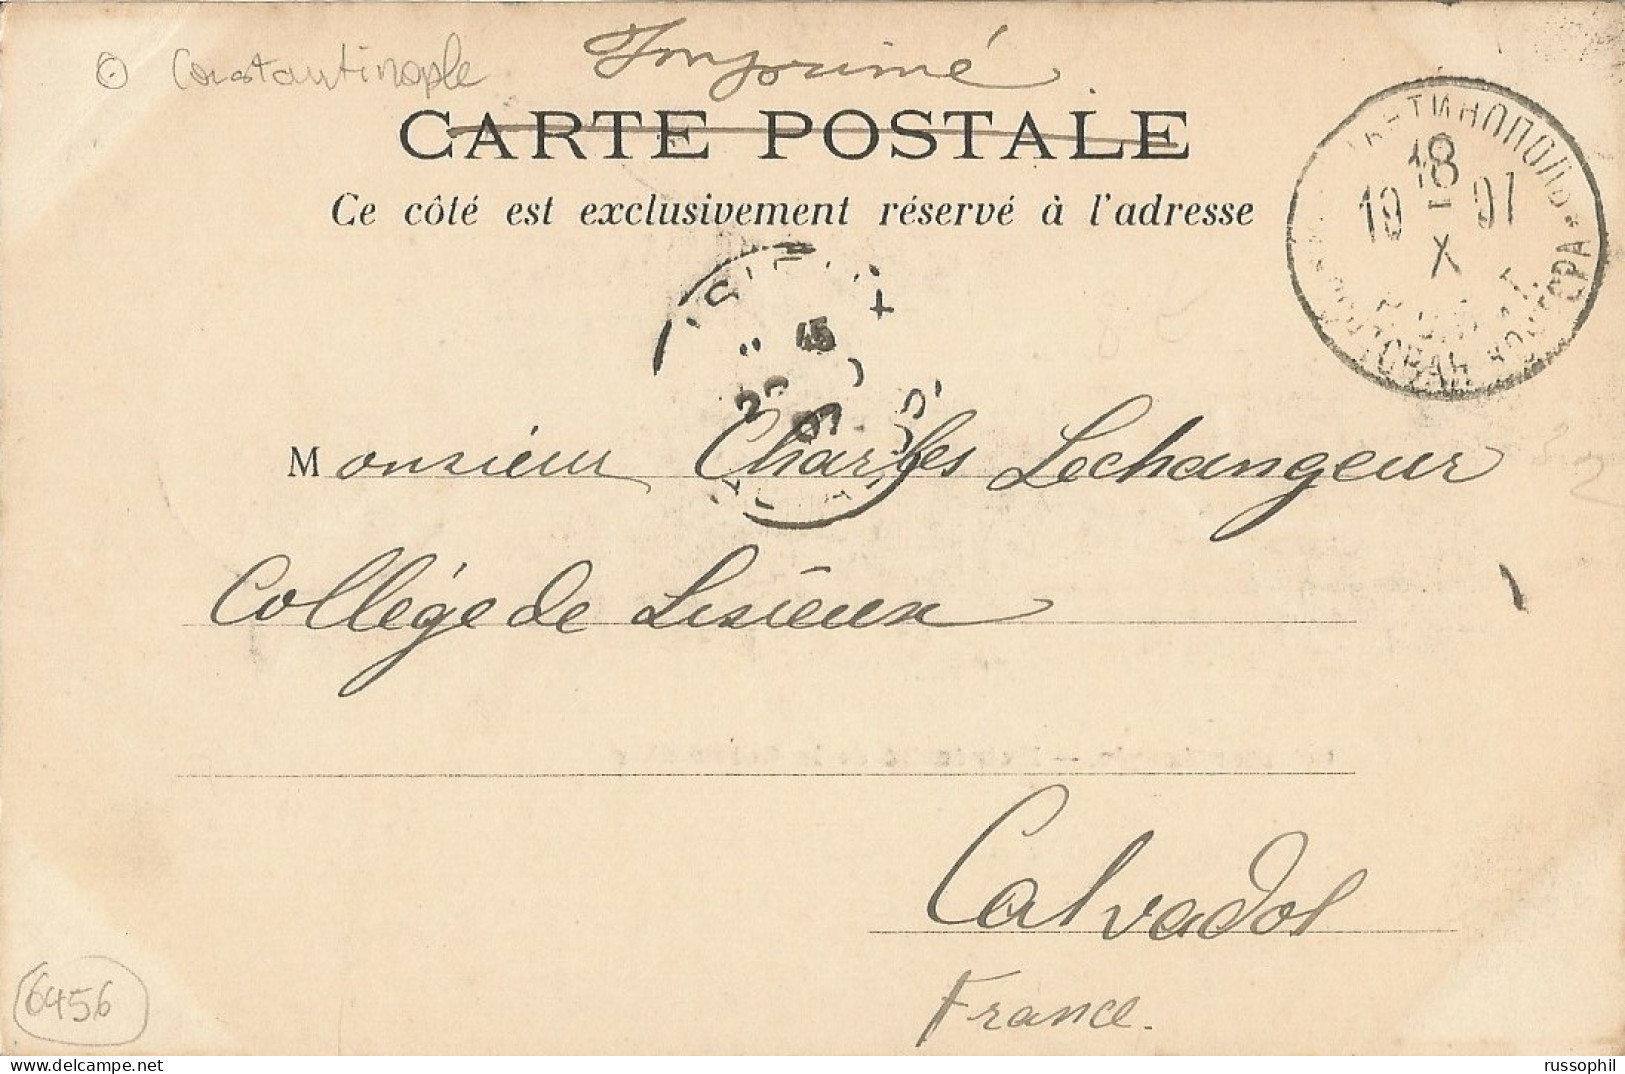 Constantinople
Imprimé
CARTE POSTALE
Ce côté est exclusivement réservé à l'adresse
18
X
19 07
Monsieur Charles Lechangeur
Collége de Lisieux
Calvados
France.
6456
russophil